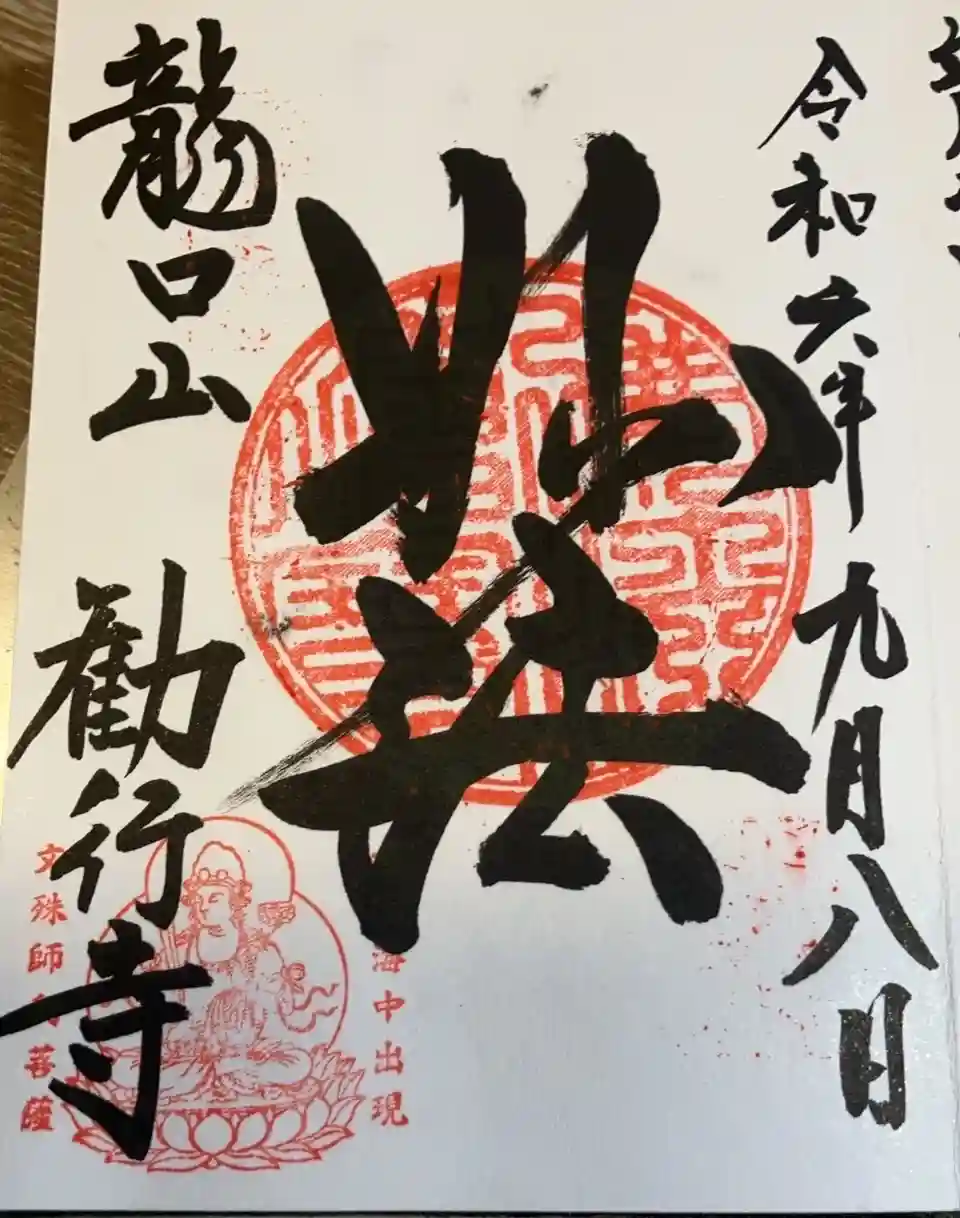 令和六年九月八日
妙法
龍口山 勧行寺
海中出現
文殊師利菩薩